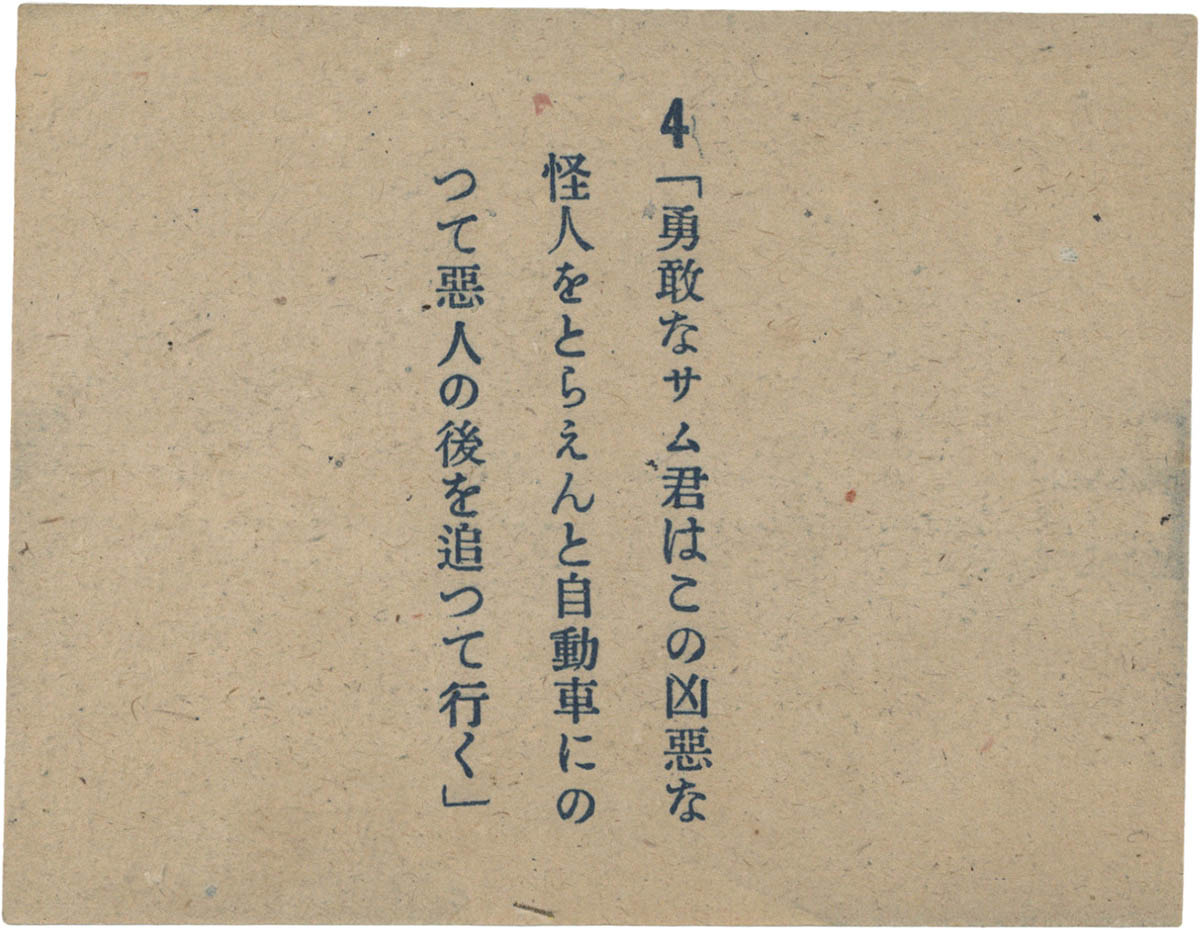 4「勇敢なサム君はこの凶惡な
怪人をとらえんと自動車にの
つて惡人の後を追つて行く」